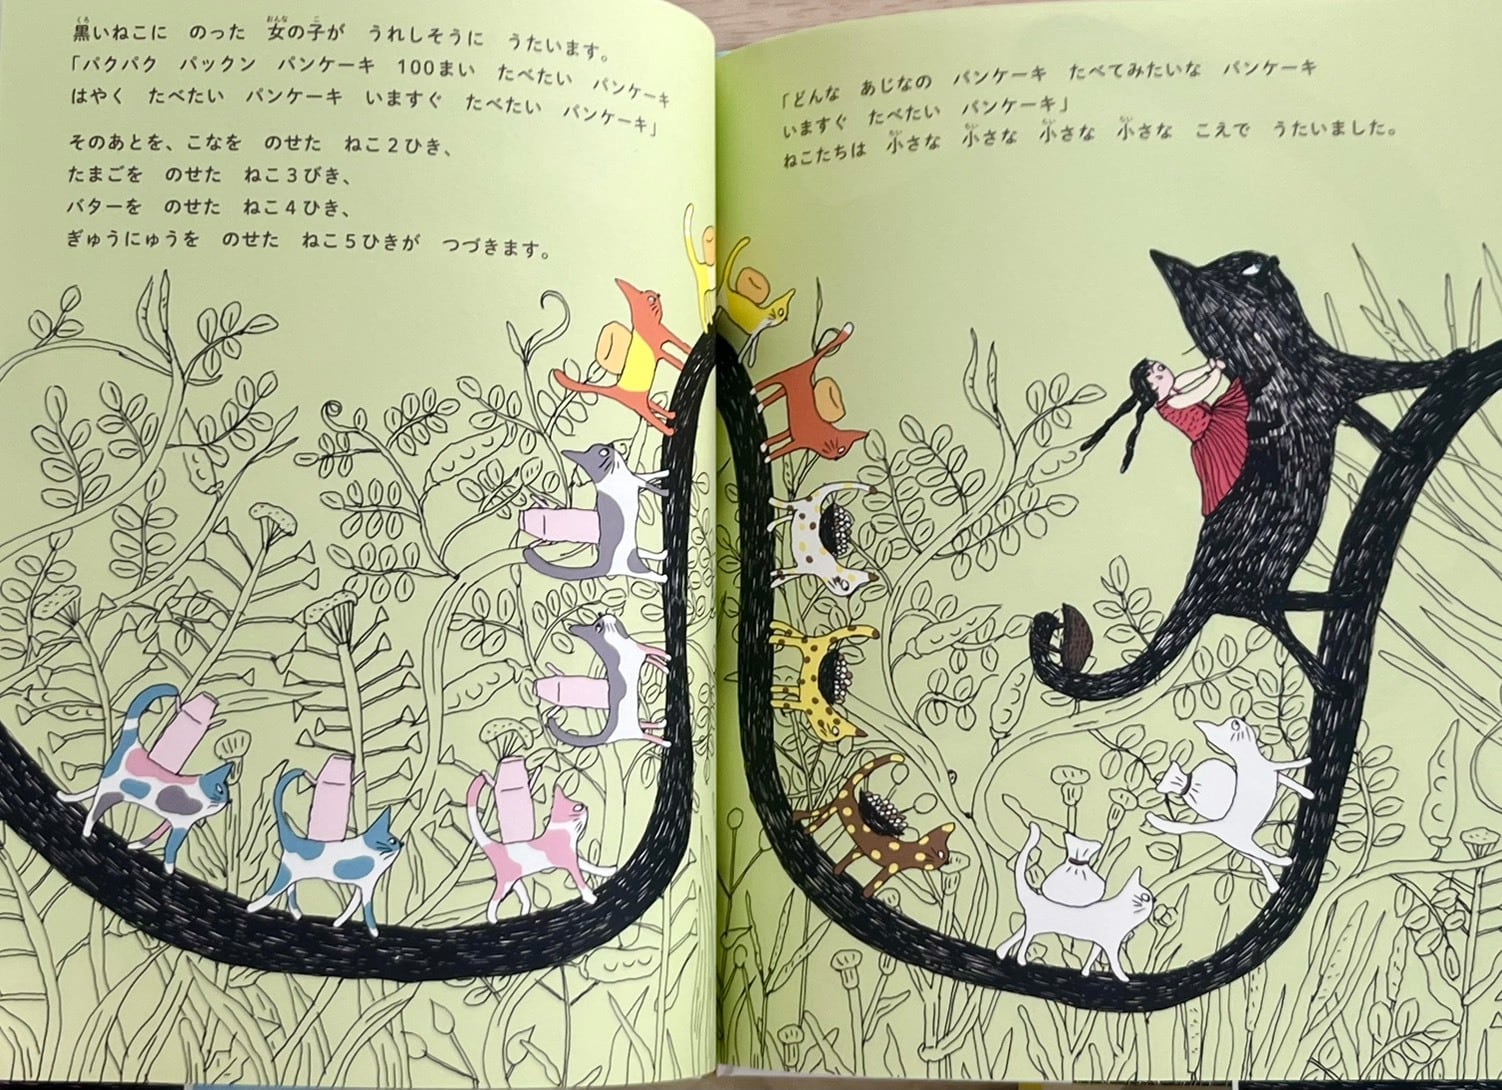 黒いねこに のった 女の子が うれしそうに うたいます。
「パクパク パックン パンケーキ 100まい たべたい パンケーキ
はやく たべたい パンケーキ いますぐ たべたい パンケーキ」
そのあとを、こなを のせた ねこ2ひき、
たまごを のせた ねこ3びき、
バターを のせた ねこ4ひき、
ぎゅうにゅうを のせた ねこ5ひきが つづきます。
「どんな あじなの パンケーキ たべてみたいな パンケーキ
いますぐ たべたい パンケーキ」
ねこたちは 小さな 小さな 小さな 小さな こえで うたいました。